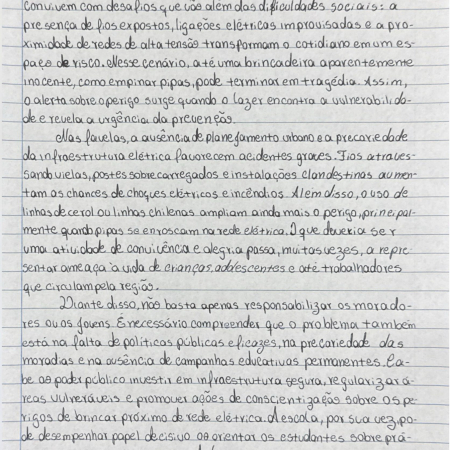 convivem com desafios que vão além das dificuldades sociais: a
presença de fios expostos, ligações elétricas improvisadas e a pro-
ximidade de redes de alta tensão transformam o cotidiano em um es-
paço de risco. Nesse cenário, até uma brincadeira aparentemente
inocente, como empinar pipas, pode terminar em tragédia. Assim,
o alerta sobre o perigo surge quando o lazer encontra a vulnerabilida-
de e revela a urgência da prevenção.
Nas favelas, a ausência de planejamento urbano e a precariedade
da infraestrutura elétrica favorecem acidentes graves. Fios atraves-
sando vielas, postes sobrecarregados e instalações clandestinas aumen-
tam as chances de choques elétricos e incêndios. Além disso, o uso de
linhas de cerol ou linhas chilenas ampliam ainda mais o perigo, principal-
mente quando pipas se enroscam na rede elétrica. O que deveria ser
uma atividade de convivência e alegria passa, muitas vezes, a repre
sentar ameaça à vida de crianças, adolescentes e até trabalhadores
que circulam pela região.
Diante disso, não basta apenas responsabilizar os morado-
res ou os jovens. É necessário compreender que o problema também
está na falta de políticas públicas eficazes, na precariedade das
moradias e na ausência de campanhas educativas permanentes. Ca-
be ao poder público investir em infraestrutura segura, regularizar á-
reas vulneráveis e promover ações de conscientização sobre os pe-
rigos de brincar próximo de rede elétrica. A escola, por sua vez, po-
de desempenhar papel decisivo ao orientar os estudantes sobre prá-